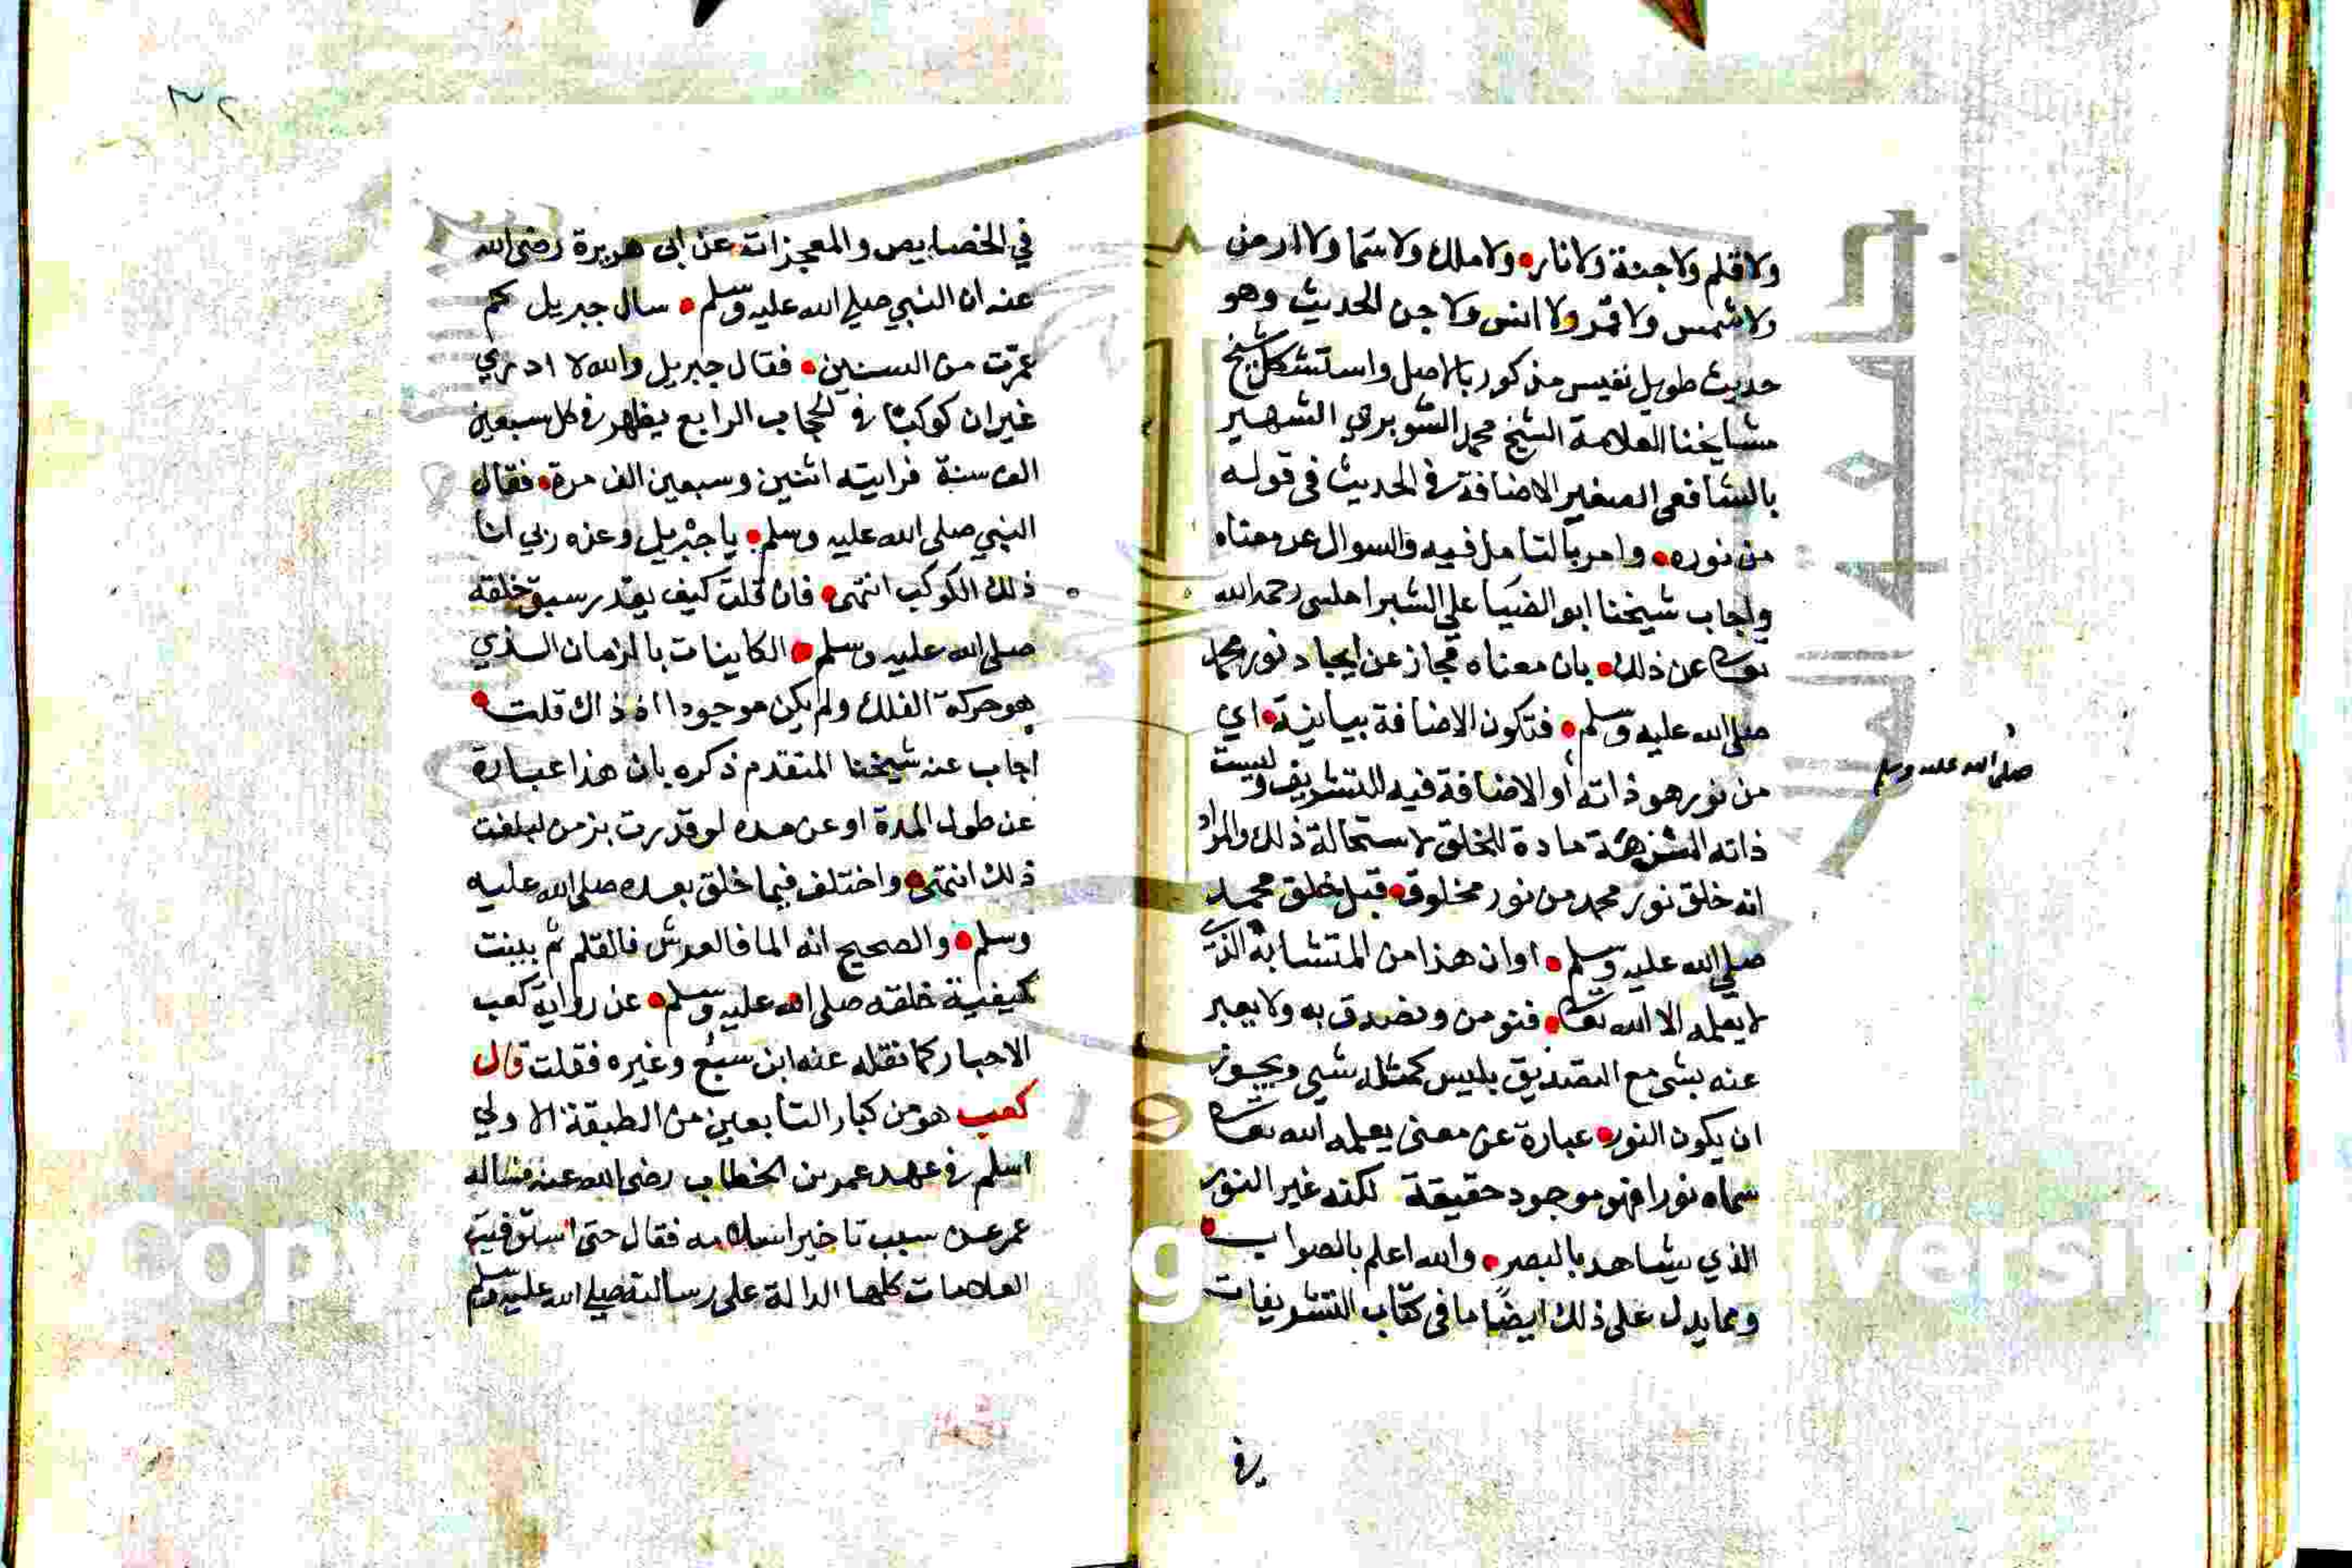 ولا قلم ولا جنة ولا نار ولا ملك ولا سما ولا ارض
ولا شمس ولا قمر ولا انس ولا جن الحديث وهو
حديث طويل نفيس مذكور بالاصل واستشكل شيخ
مشايخنا العلامة الشيخ محمد الشوبري الشهير
بالشافعي الصغير الاضافة في الحديث في قوله
من نوره وامر بالتامل فيه والسوال عن معناه
واجاب شيخنا ابو الضيا علي الشبراملسى رحمه الله
تعالى عن ذلك بان معناه مجاز عن ايجاد نور محمد
صلى الله عليه وسلم فتكون الاضافة بيانية اي
من نور هو ذاته او الاضافة فيه للتشريف وليست
ذاته المنزهة مادة للخلق لاستحالة ذلك والمراد
انه خلق نور محمد من نور مخلوق قبل خلق محمد
صلى الله عليه وسلم او ان هذا من المتشابه الذي
لا يعلمه الا الله تعالى فنومن ونصدق به ولا يعبر
عنه بشي مع التصديق بليس كمثله شي ويجوز
ان يكون النور عبارة عن معنى يعلمه الله تعالى
سماه نورا فهو موجود حقيقة لكنه غير النور
الذي يشاهد بالبصر والله اعلم بالصواب
ومما يدل على ذلك ايضًا ما في كتاب التشريفات
في
صلى الله عليه وسلم
٣٢
في الخصايص والمعجزات عن ابى هريرة رضى الله
عنه ان النبي صلى الله عليه وسلم سال جبريل كم
عمرت من السنين فقال جبريل والله لا ادري
غير ان كوكبًا في الحجاب الرابع يظهر في كل سبعين
الف سنة فرايته اثنين وسبعين الف مرة فقال
النبي صلى الله عليه وسلم يا جبريل وعزه ربي انا
ذلك الكوكب انتهى فان قلت كيف يقدر سبق خلقه
صلى الله عليه وسلم الكاينات بالزمان الذي
هو حركة الفلك ولم يكن موجودا اذ ذاك قلت
اجاب عنه شيخنا المتقدم ذكره بان هذا عبارة
عن طول المدة او عن مده لو قدرت بزمن لبلغت
ذلك انتهى واختلف فيما خلق بعده صلى الله عليه
وسلم والصحيح انه الما فالعرش فالقلم ثم بينت
كيفية خلقه صلى الله عليه وسلم عن رواية كعب
الاحبار كما نقله عنه ابن سبع وغيره فقلت قال
كعب هو من كبار التابعين من الطبقة الاولي
اسلم في عهد عمر بن الخطاب رضى الله عنه فساله
عمر عن سبب تاخير اسلامه فقال حتى استوفيت
العلامات كلها الدالة على رسالته صلى الله عليه وسلم